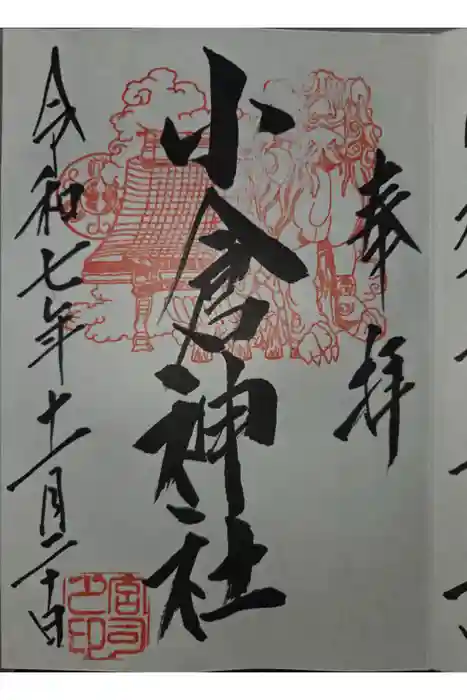 奉拝
小倉神社
令和七年十一月二十日
宮司之印